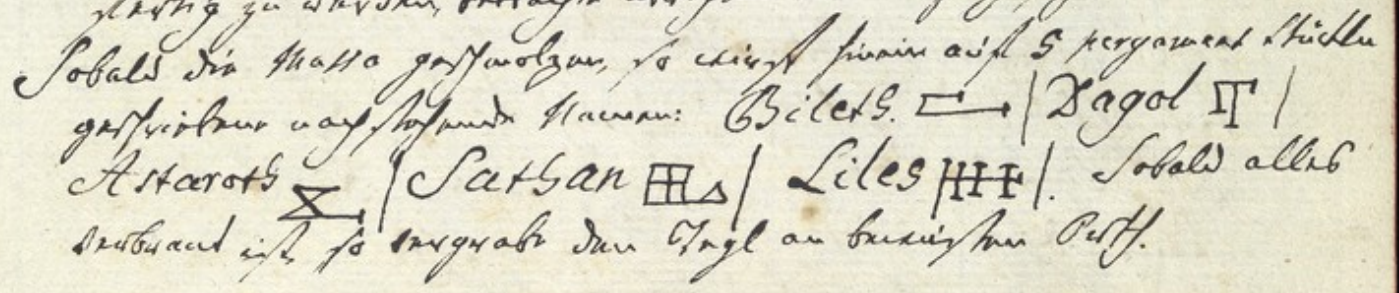 fertig zu werden,
Sobald die Massa geschmolzen, so wirf hinein auf 5 pergament stückln
geschriebene nachstehende Namen: Bileth. | Dagol |
Astaroth | Sathan | Liles |. Sobald alles
verbrant ist, so vergrabe den Tegl an bewusten Orth.